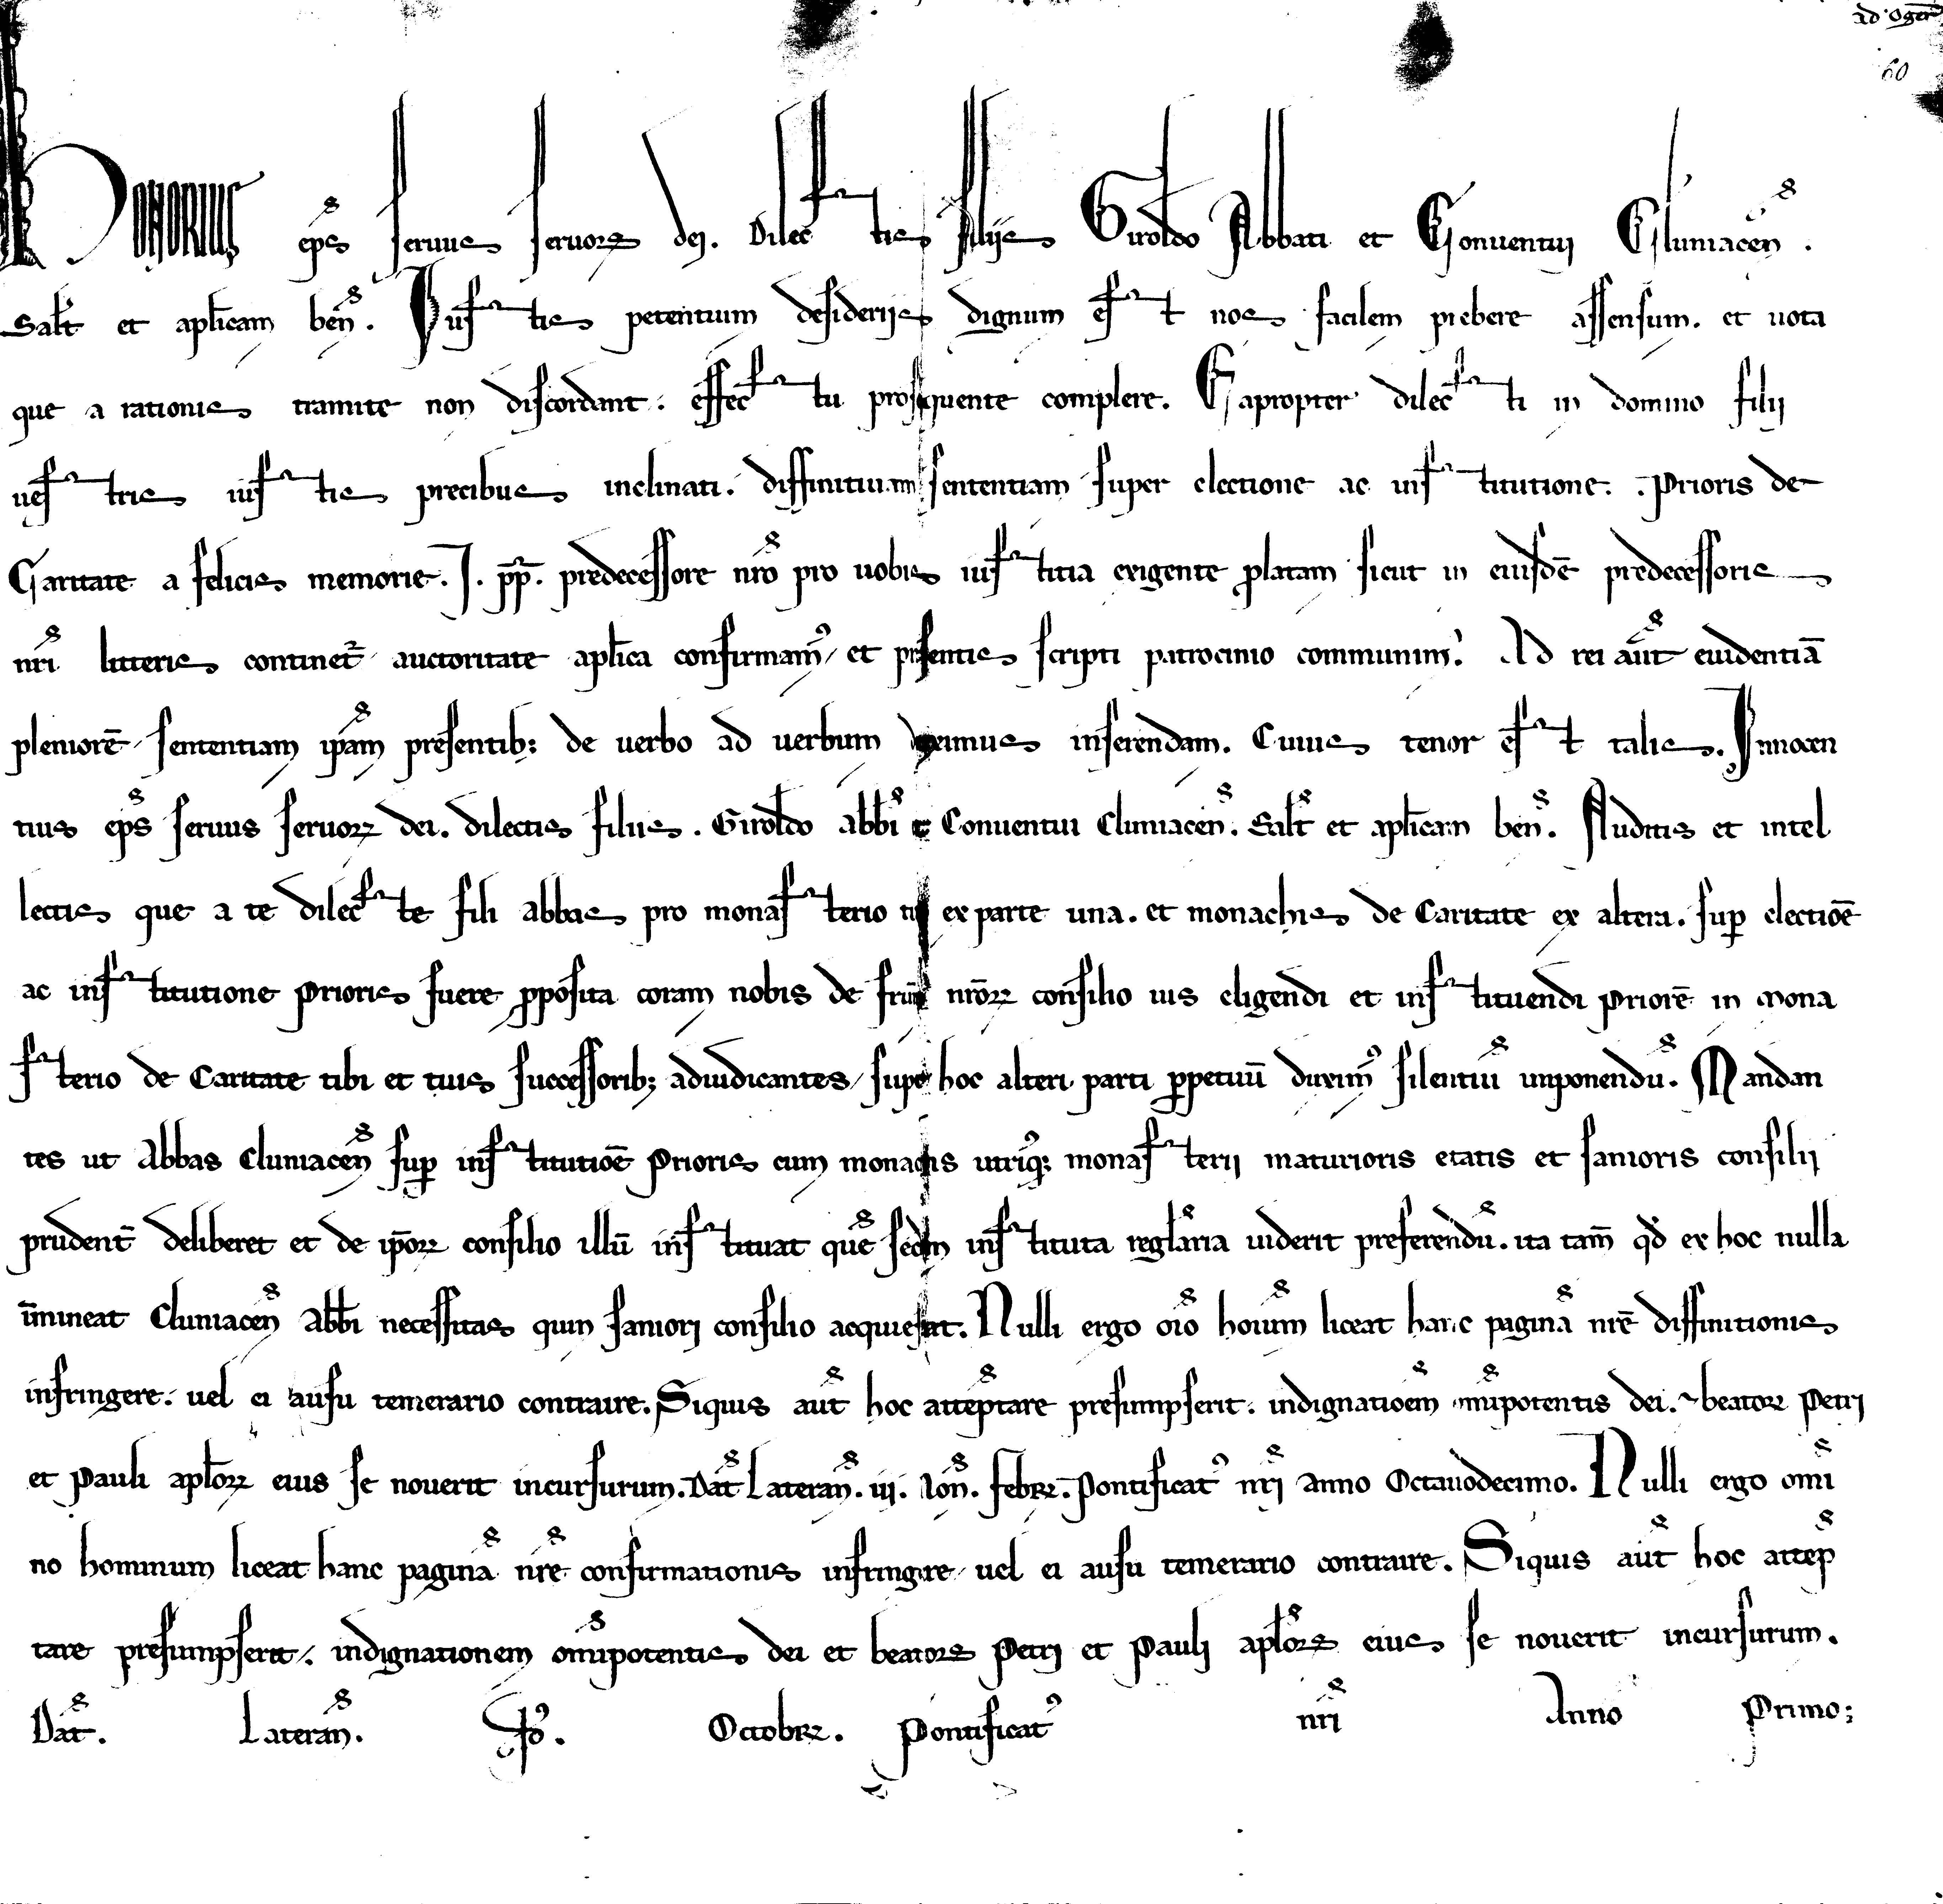 ad Oger̄
60
HONORIUS ep̄s seruus seruoꝝ dei. Dilectis filiis Giroldo Abbati et Conuentui Cluniaceñ.
Sal̄t et ap̄licam beñ. Iustis petentium desideriis dignum est nos facilem prebere assensum. et uota
que a rationis tramite non discordant. effectu prosequente complere. Eapropter dilecti in domino filii
uestris iustis precibus inclinati. diffinitiuam sententiam super electione ac institutione. Prioris de
Caritate a felicis memorie. I. p̄p̄. predecessore nr̄o pro uobis iustitia exigente ꝓlatam sicut in eiusdē predecessoris
nr̄i litteris continet᷑ auctoritate ap̄lica confirmamꝰ, et presentis scripti patrocinio communimꝰ. Ad rei aut̄ euidentiā
pleniorē, sententiam ip̄am presentib; de uerbo ad uerbum duximus inserendam. Cuius tenor est talis. Innocen
tius ep̄s seruus seruoꝝ dei. dilectis filiis. Giroldo abb̄i et Conuentui Cluniaceñ. Sal̄t et ap̄licam beñ. Auditis et intel
lectis que a te dilecte fili abbas pro monasterio tuo ex parte una. et monachis de Caritate ex altera. suꝑ electiōe
ac institutione Prioris fuere ꝓposita coram nobis de fr̄um nr̄oꝝ consilio ius eligendi et instituendi Priorē in mona
sterio de Caritate tibi et tuis successorib; adiudicantes, super hoc alteri parti ꝑpetuū duximꝰ silentiū imponendū. Mandan
tes ut Abbas Cluniaceñ suꝑ institutiōe Prioris cum monachis utriusq; monasterii maturioris etatis et sanioris consilii
prudent̄ deliberet et de ip̄oꝝ consilio illū instituat quē secdm instituta regl̄aria uiderit preferendū. ita tam̄ qd̄ ex hoc nulla
īmineat Cluniaceñ Abb̄i necessitas quin saniori consilio acquiescat. Nulli ergo oīo hoīum liceat hanc paginā nr̄e diffinitionis
infringere. uel ei ausu temerario contraire. Siquis aut̄ hoc atteptare presumpserit. indignatiōem omīpotentis dei. ⁊ beatoꝝ Petri
et Pauli ap̄loꝝ eius se nouerit incursurum. Dat̄ Laterañ. iij. Non̄. Febrꝝ. Pontificatꝰ nr̄i Anno Octauodecimo. Nulli ergo omī
no hominum liceat hanc paginā nr̄e confirmationis infringere, uel ei ausu temerario contraire. Siquis aut̄ hoc attep̄
tare presumpserit. indignationem omīpotentis dei et beatoꝝ Petri et Pauli ap̄loꝝ eius se nouerit incursurum.
Dat̄. Laterañ. Octobrꝝ. Pontificatꝰ nr̄i Anno Primo;